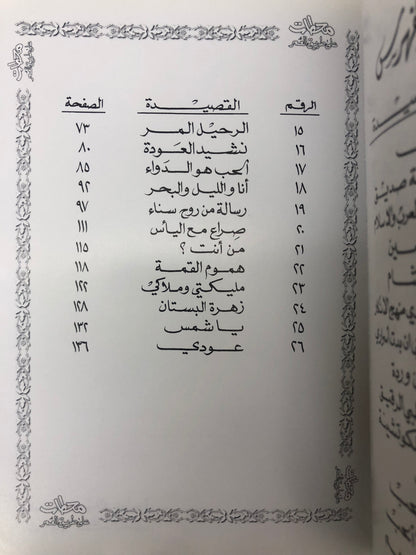 محطات
على طريق العمر
الرقم القصيدة الصفحة
١٥ الرحيل المر ٧٣
١٦ نشيد العودة ٨٠
١٧ الحب هو الدواء ٨٥
١٨ أنا والليل والبحر ٩٢
١٩ رسالة من روح سناء ٩٧
٢٠ صراع مع اليأس ١١١
٢١ من أنت ؟ ١١٥
٢٢ هموم القمة ١١٨
٢٣ مليكتي وملاكي ١٢٢
٢٤ زهرة البستان ١٢٨
٢٥ يا شمس ١٣٢
٢٦ عودي ١٣٦
محطات
على طريق العمر